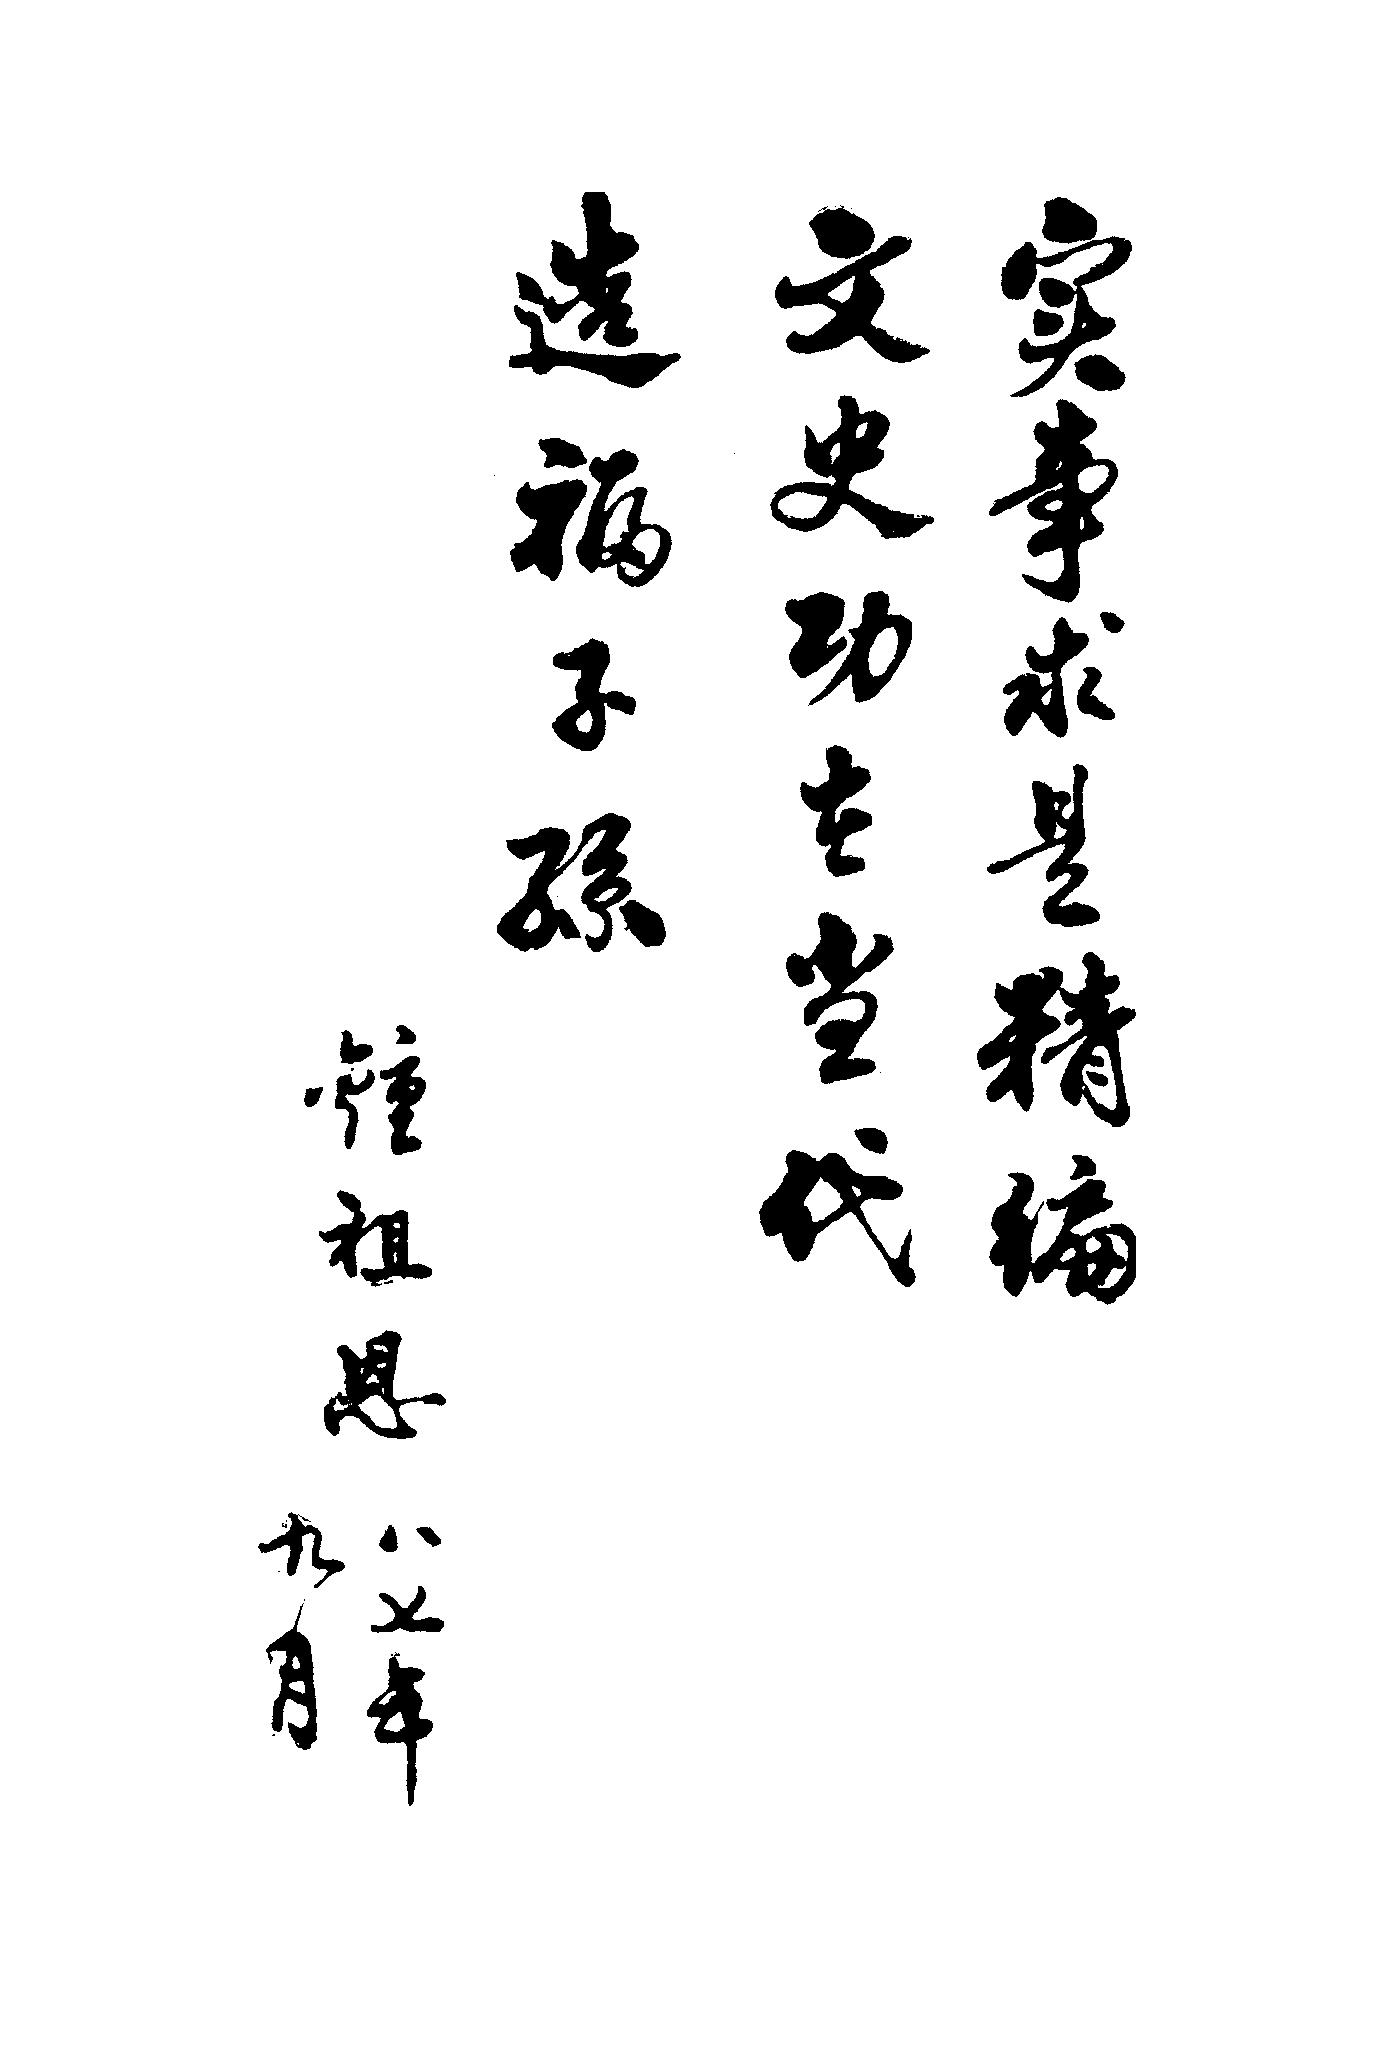 实事求是精编
文史功在当代
造福子孙
鍾祖恩
八七年
九月